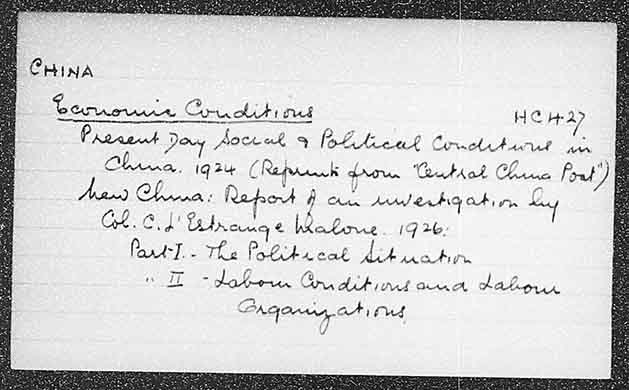 CHINA
Economic Conditions HC427
Present Day Social & Political Conditions in
China. 1924 (Reprints from "Central China Post")
New China: Report of an investigation by
Col. C. L'Estrange Malone. 1926:
Part I. - The Political Situation
" II - Labour Conditions and Labour
Organizations